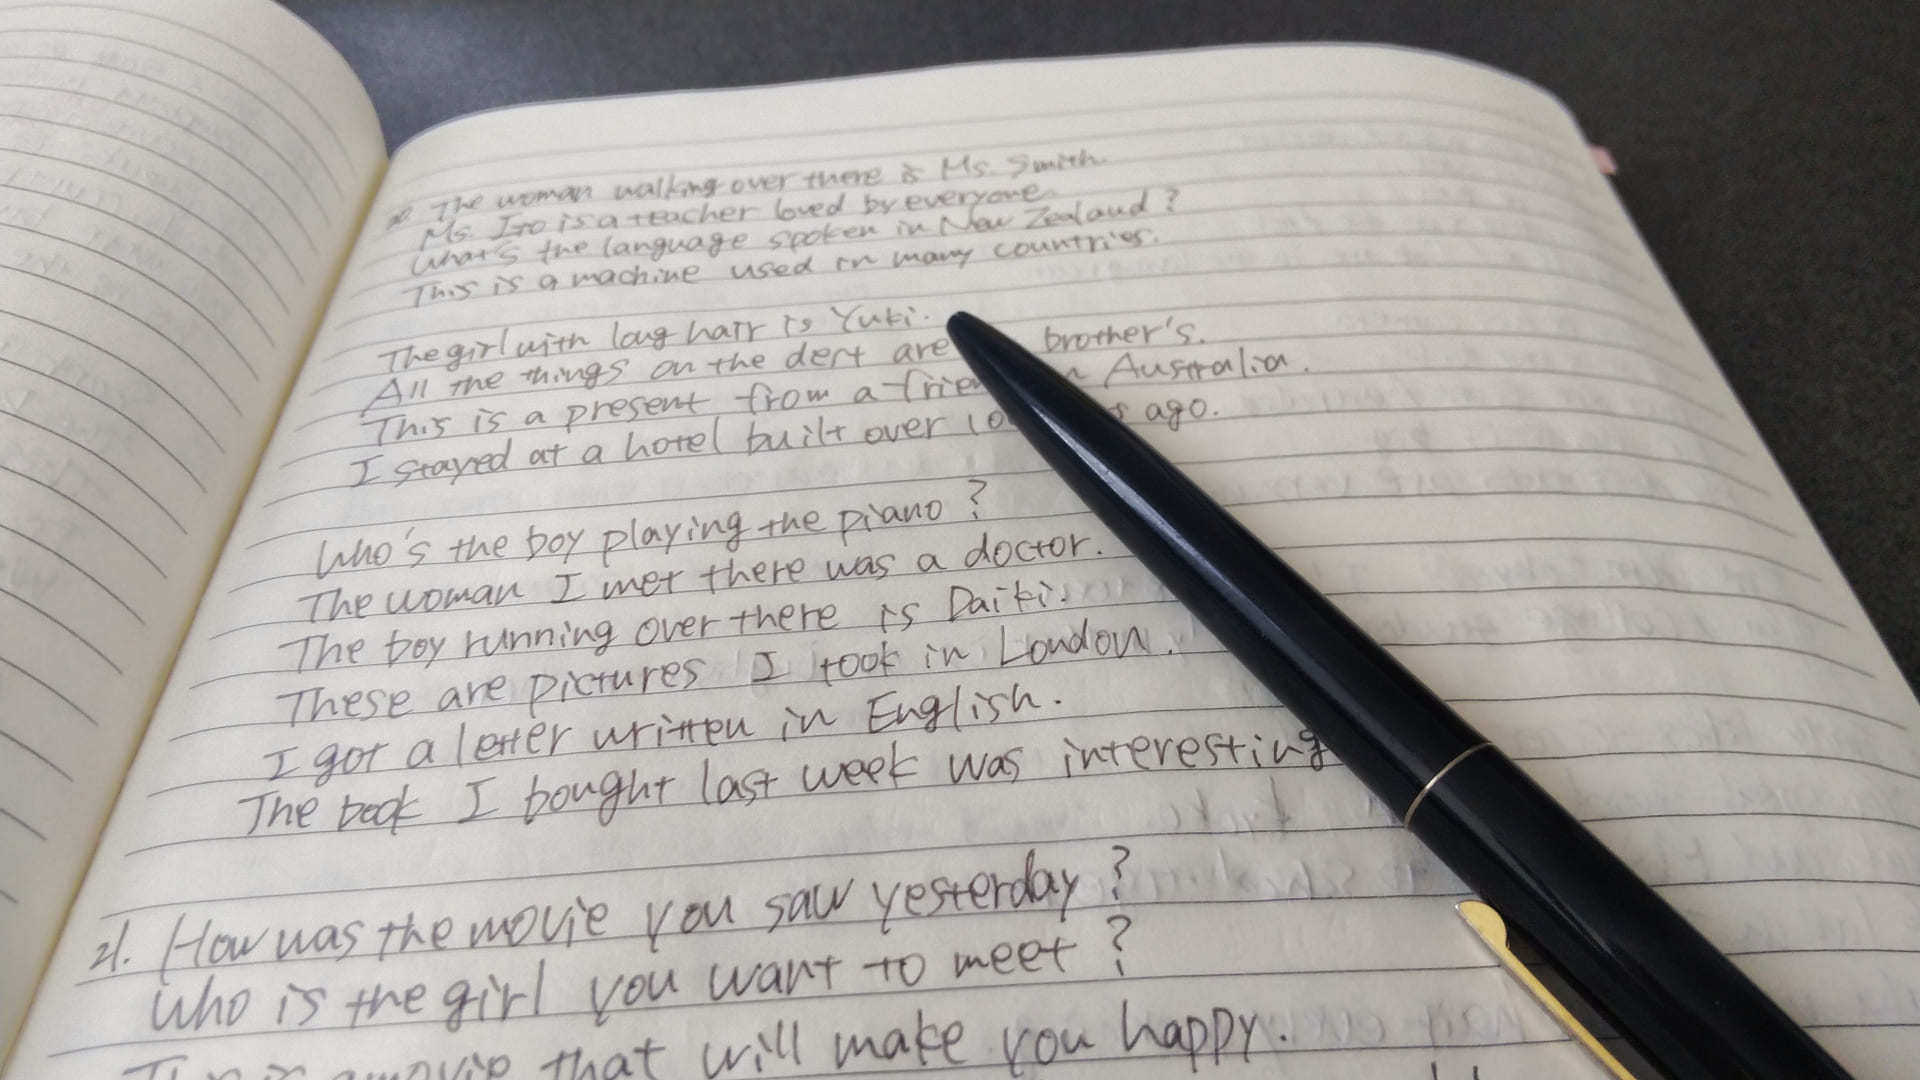 20. The woman walking over there is Ms. Smith.
Ms. Ito is a teacher loved by everyone.
What's the language spoken in New Zealand?
This is a machine used in many countries.
The girl with long hair is Yuki.
All the things on the dert are brother's.
This is a present from a frien n Australia.
I stayed at a hotel built over 10 s ago.
Who's the boy playing the piano?
The woman I met there was a doctor.
The boy running over there is Daiki.
These are pictures I took in London.
I got a letter written in English.
The book I bought last week was interesting
21. How was the movie you saw yesterday?
Who is the girl you want to meet?
This is a movie that will make you happy.